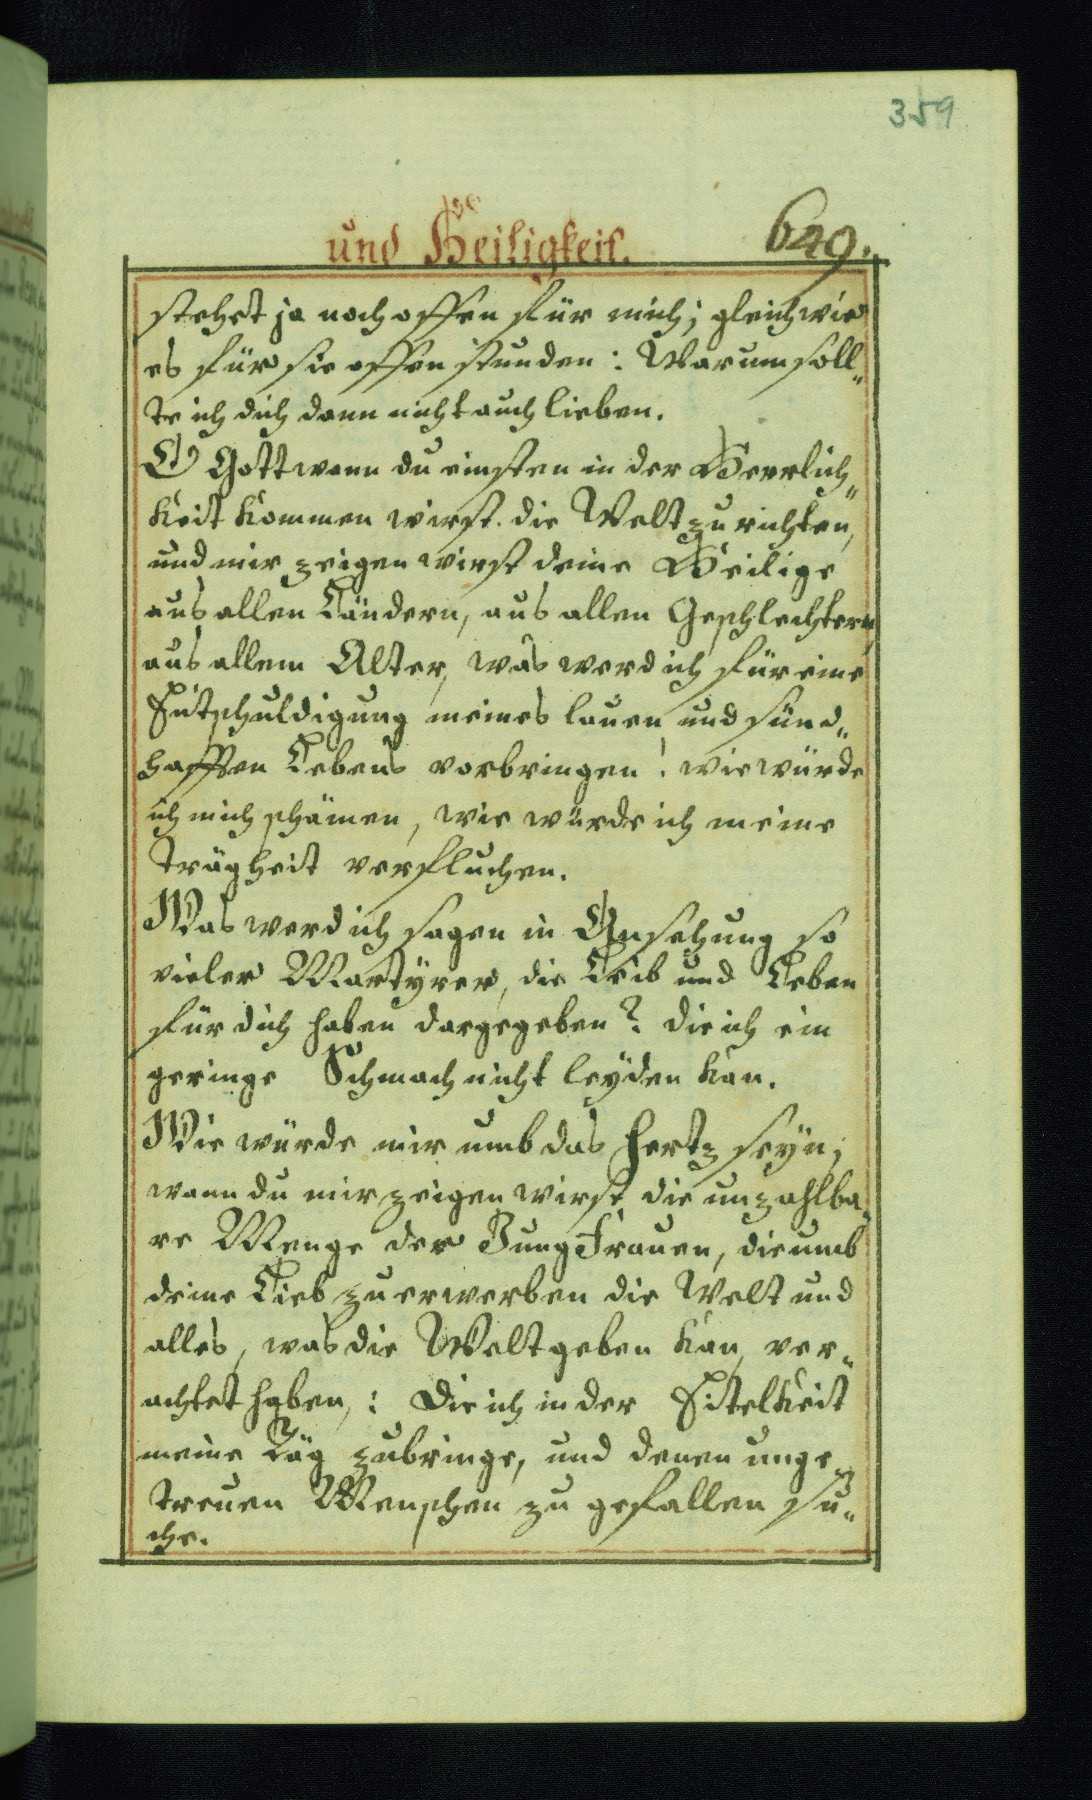 359
und Heiligkeit. 649.
stehet ja noch offen für mich; gleichwie
es für sie offen stunden: Warum soll„
te ich dich dann nicht auch lieben.
O Gott wann du einsten in der Herrlich„
keit kommen wirst. die Welt zu richten,
und mir zeigen wirst deine Heilige
aus allen Ländern, aus allen Geschlechtern,
aus allem Alter, was werd ich für eine
Entschuldigung meines lauen, und sünd„
hafften Lebens vorbringen! wie würde
ich mich schämen, wie würde ich meine
Trägheit verfluchen.
Was werd ich sagen in Ansehung so
vieler Martÿrer, die Leib und Leben
für dich haben dargegeben? die ich ein
geringe Schmach nicht leÿden kan.
Wie würde mir umb das Hertz seÿn;
wann du mir zeigen wirst die unzahlba„
re Menge der JungFrauen, die umb
deine Lieb zu erwerben die Welt und
alles, was die Welt geben kan, ver„
achtet haben,: die ich in der Eitelkeit
meine Täg zubringe, und denen unge„
treuen Menschen zu gefallen su„
che.